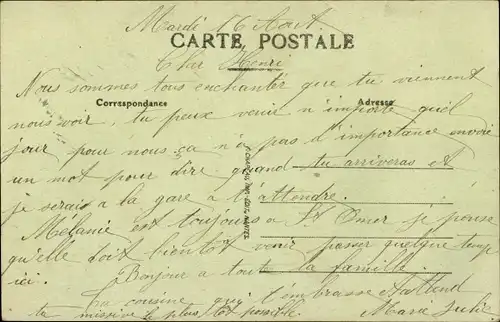 Mardi 16 Aout
CARTE POSTALE
Cher Henri
Nous sommes tous enchantér que tu viennent
Correspondance
Adresse
nous voir, tu peux venir n'importe quel
jour pour nous ça n'a pas d'importance envoie
un mot pour dire quand tu arriveras et
je serais a la gare a l'attendre.
Mélanie est toujours a St Omer je pense
qu'elle doit bientôt venir passer quelque temp
ici. Bonjour a toute la famille.
Ta cousine qui t'embrasse et attend
ta missive le plus tot possible. Marie